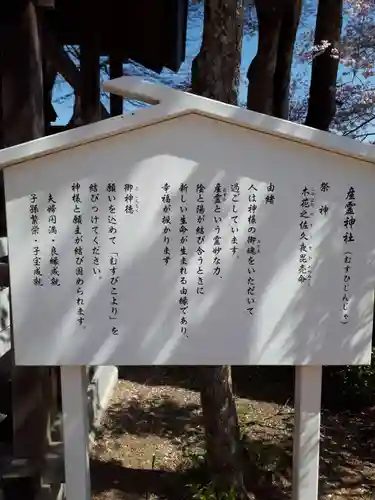 産霊神社 （むすひじんじゃ）
祭神
木花之佐久夜毘売命
由緒
人は神様の御魂をいただいて
過ごしています。
産霊という霊妙な力、
陰と陽が結び合うときに
新しい生命が生まれる由縁であり、
幸福が授かります。
御神徳
願いを込めて「むすびこより」を
結びつけてください。
神様と願主が結び固められます。
夫婦円満・良縁成就
子孫繁栄・子宝成就